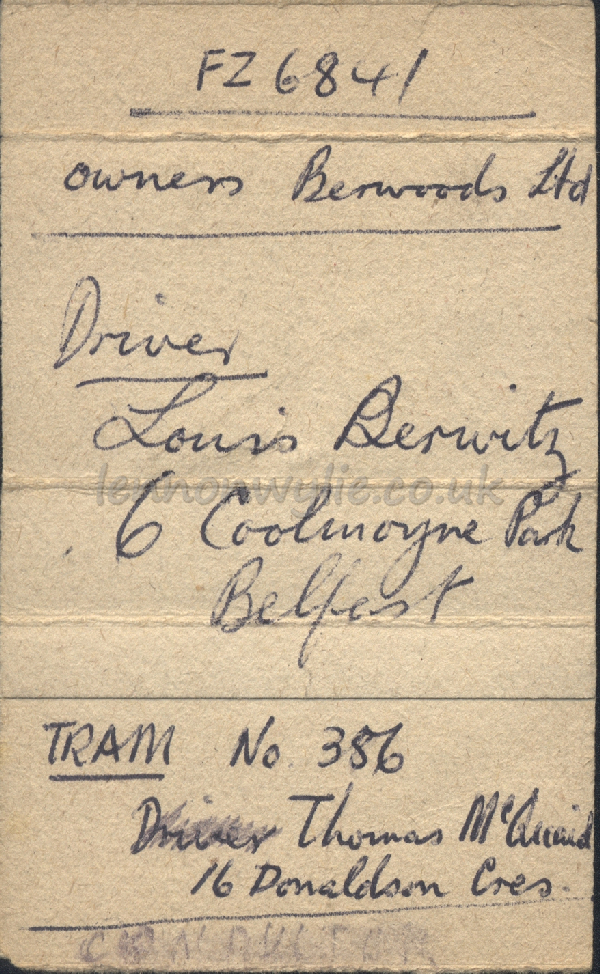 FZ 6841
owners Berwoods Ltd
Driver
Louis Berwitz
lennonwylie.co.uk
6 Coolmoyne Park
Belfast
TRAM No. 356
Driver Thomas McQuaid
16 Donaldson Cres.